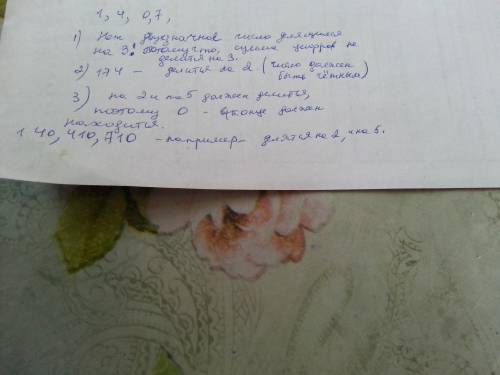 1, 4, 0,7,
1) Нет двузначное число делящился
на 3! Потомучто, сумма цифров не
делится на 3.
2) 174 – делится на 2 (число должен
быть чётным)
3) на 2 и на 5 должен делится,
поэтому 0 – вконце должен
находится.
140, 410, 710 – например – делятся на 2, и на 5.